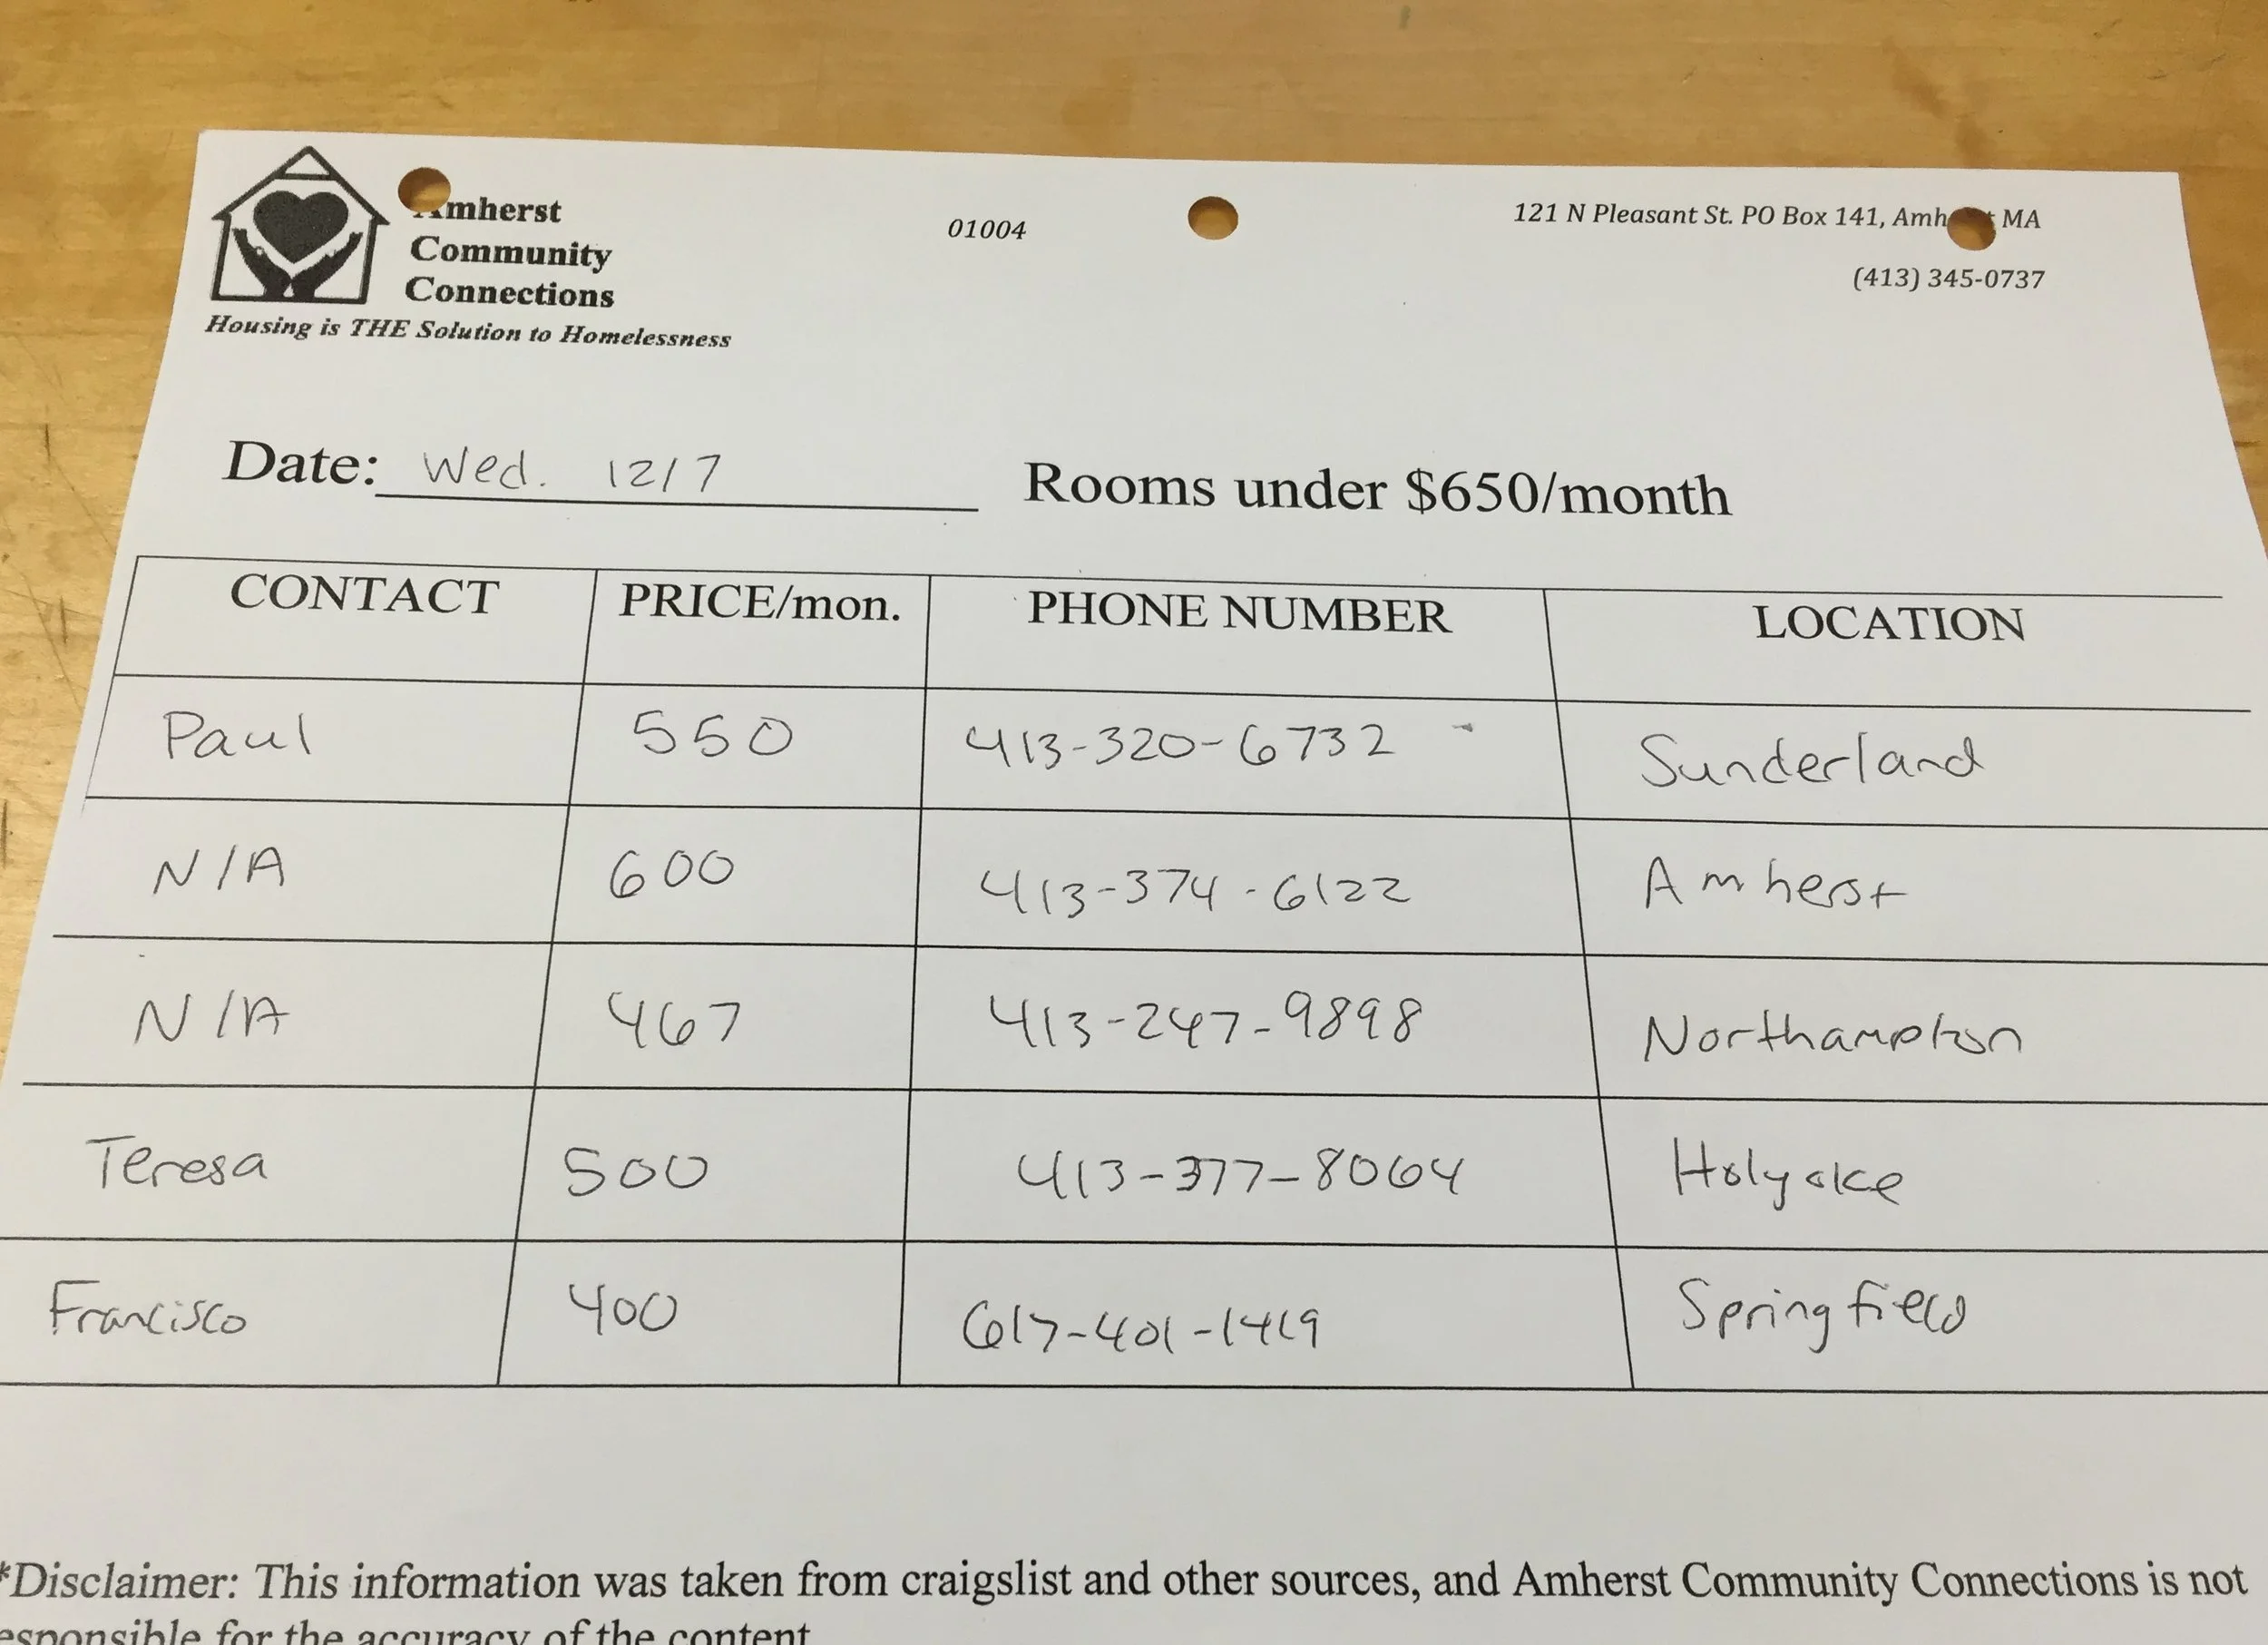 Amherst
Community
Connections
Housing is THE Solution to Homelessness
01004
121 N Pleasant St. PO Box 141, Amherst MA
(413) 345-0737
Date: Wed. 12/7 Rooms under $650/month
CONTACT PRICE/mon. PHONE NUMBER LOCATION
Paul 550 413-320-6732 Sunderland
N/A 600 413-374-6122 Amherst
N/A 467 413-247-9898 Northampton
Teresa 500 413-377-8064 Holyoke
Francisco 400 617-401-1419 Springfield
*Disclaimer: This information was taken from craigslist and other sources, and Amherst Community Connections is not
responsible for the accuracy of the content